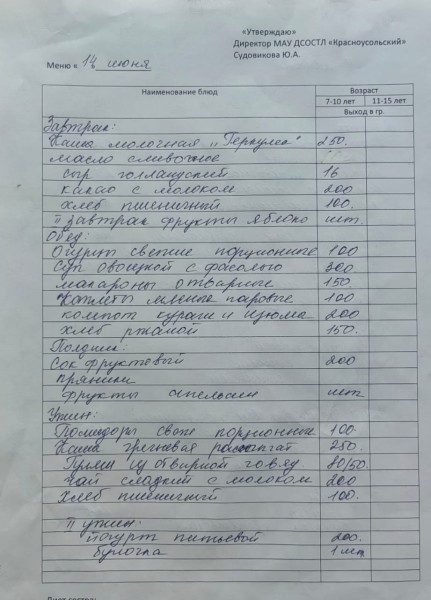 «Утверждаю»
Директор МАУ ДСОСТЛ «Красноусольский»
Судовикова Ю.А.
Меню « 14 июня
Наименование блюд Возраст
7-10 лет 11-15 лет
Выход в гр.
Завтрак:
Каша молочная „Геркулес" 250.
масло сливочное
сыр голландский 16
какао с молоком 200
хлеб пшеничный 100.
II завтрак фрукты яблоко 1шт.
Обед:
Огурцы свежие порционные 100
Суп овощной с фасолью 300
макароны отварные 150.
Котлеты мясные паровые 100
компот кураги и изюма 200
хлеб ржаной 150.
Полдник:
Сок фруктовый 200
пряники
фрукты апельсин 1шт
Ужин:
Помидоры свеж порционные 100.
Каша гречневая рассыпчат 250.
Гуляш из отварной говяд 80/50.
Чай сладкий с молоком 200
Хлеб пшеничный 100.
II ужин.
йогурт питьевой 200.
булочка 1 шт